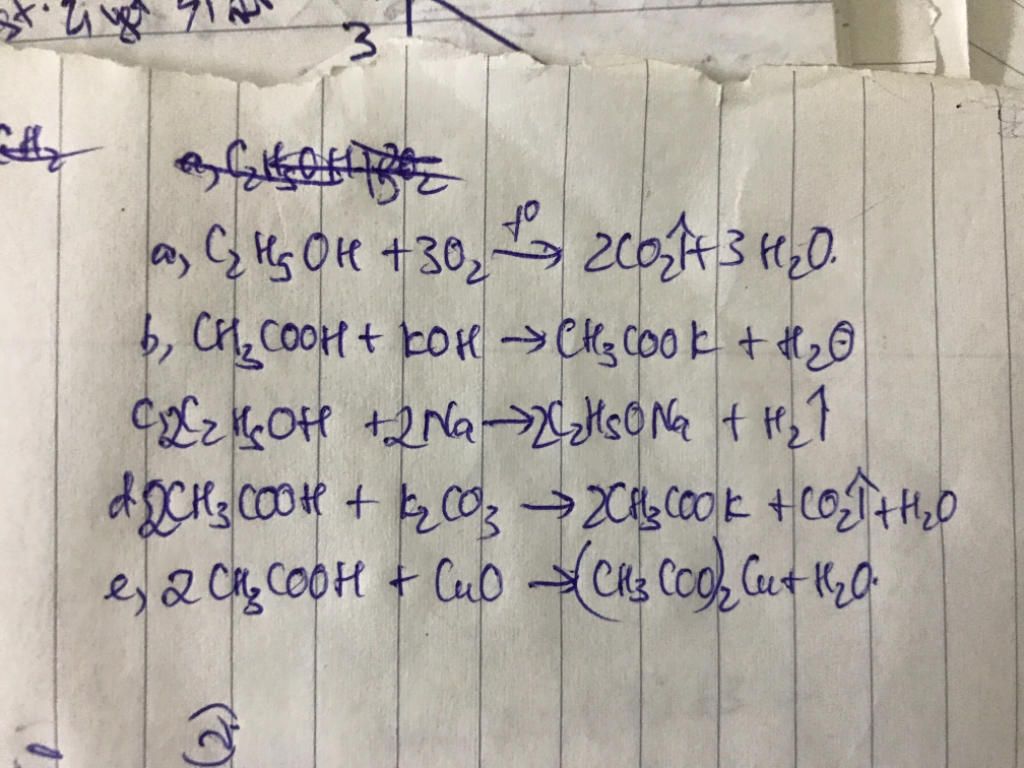 3
a, C₂H₅OH + 3O₂ —t⁰→ 2CO₂↑ + 3 H₂O.
b, CH₃COOH + KOH → CH₃COOK + H₂O
c, 2C₂H₅OH + 2Na → 2C₂H₅ONa + H₂↑
d, 2CH₃COOH + K₂CO₃ → 2CH₃COOK + CO₂↑ + H₂O
e, 2CH₃COOH + CuO → (CH₃COO)₂Cu + H₂O.
2